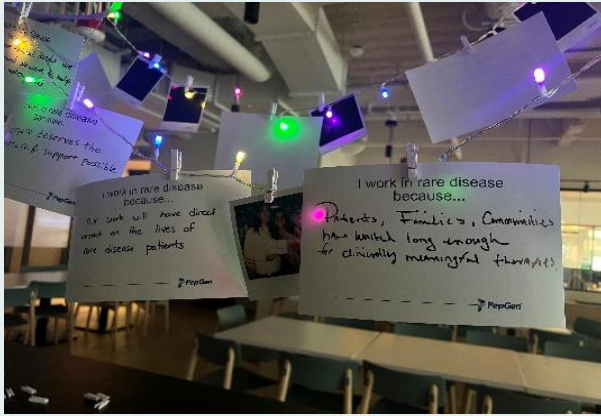 disease
want to help
I work in rare disease
because...
deserves the
support possible
PepGen
I work in rare disease
because...
our work will have direct
impact on the lives of
rare disease patients
PepGen
I work in rare disease
because...
Patients, Families, Communities
have waited long enough
for clinically meaningful therapies.
PepGen